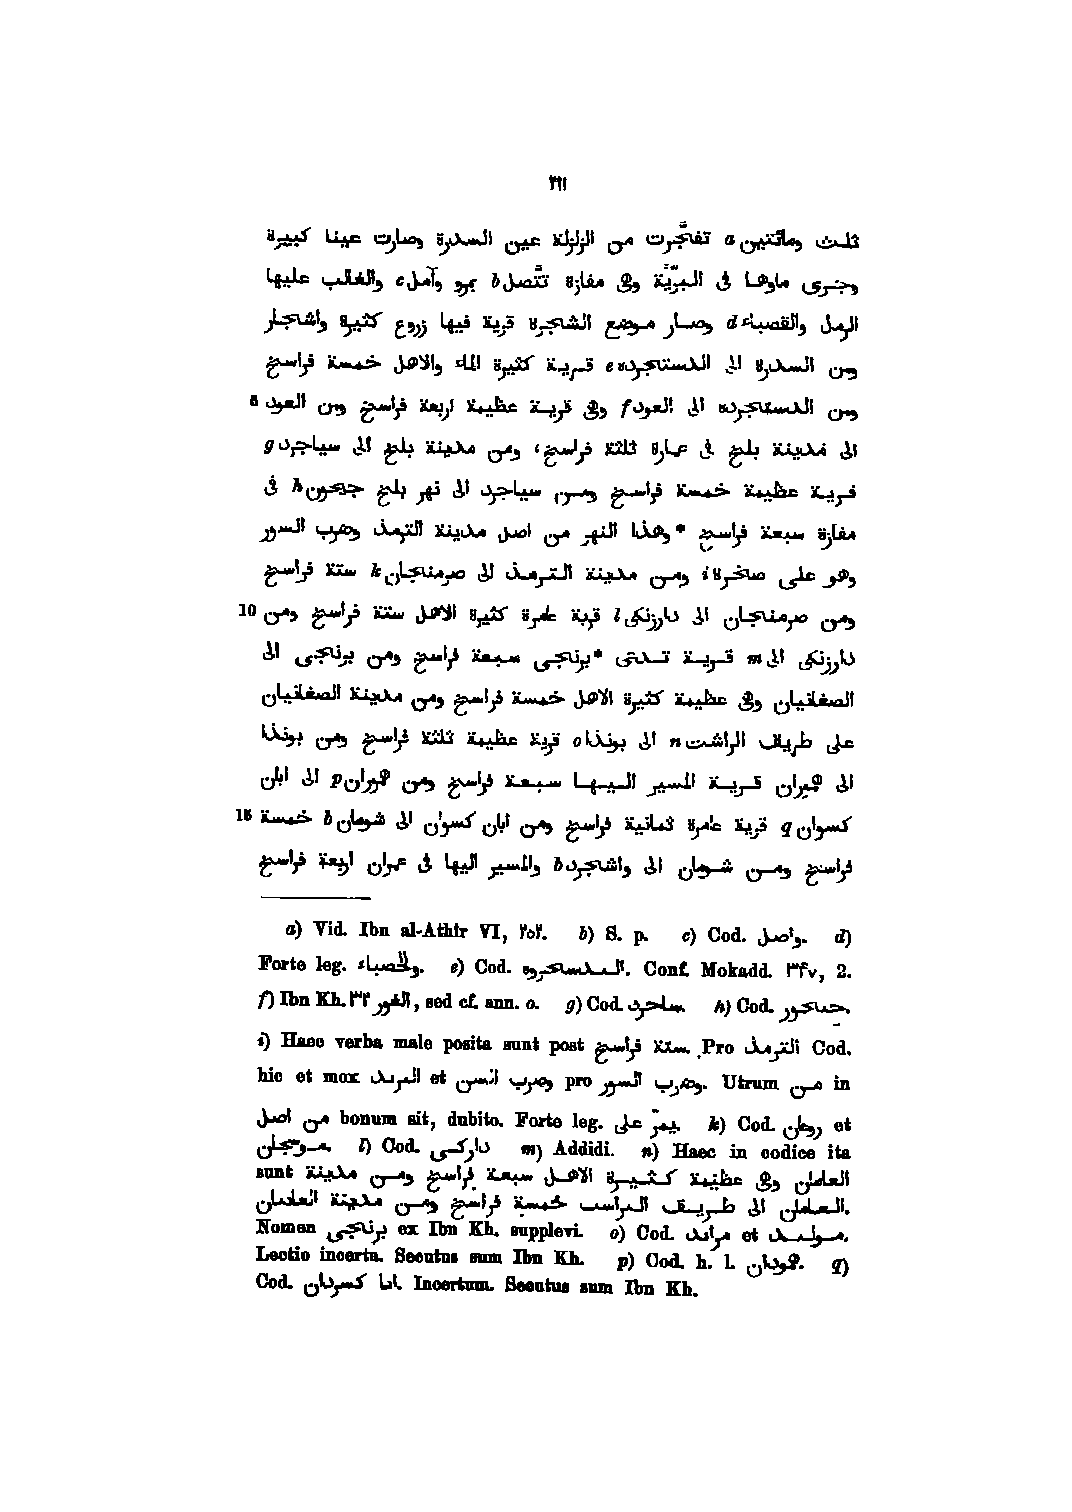 ٢١١
ثلث ومائتين a تفجّرت من الزلزلة عين السدرة وصارت عينا كبيرة
وجرى ماوها فى البرّيّة وفى مفازة تتّصل b بمرو وآمل c والغالب عليها
الرمل والقصباء d وصار موضع الشجرة قرية فيها زروع كثيرة واشجار
ومن السدرة الى الدستجرده e قرية كثيرة الماء والاهل خمسة فراسخ
ومن الدستجرده الى العود f وفى قرية عظيمة اربعة فراسخ ومن العود 5
الى مدينة بلخ فى عمارة ثلثة فراسخ، ومن مدينة بلخ الى سياجرد g
قرية عظيمة خمسة فراسخ ومن سياجرد الى نهر بلخ جيحون h فى
مفازة سبعة فراسخ *وهذا النهر من اصل مدينة الترمذ وضرب السور
وهو على صخرة i ومن مدينة الترمذ الى صرمنجان k ستة فراسخ
ومن صرمنجان الى دارزنكى l قرية عامرة كثيرة الاهل ستة فراسخ ومن 10
دارزنكى الى m قرية تدتى *برنجى سبعة فراسخ ومن برنجى الى
الصغانيان وفى عظيمة كثيرة الاهل خمسة فراسخ ومن مدينة الصغانيان
على طريق الراشت n الى بونذا o قرية عظيمة ثلثة فراسخ ومن بونذا
الى همران قرية المسير اليها سبعة فراسخ ومن همران p الى ابان
كسوان q قرية عامرة ثمانية فراسخ ومن ابان كسوان الى شومان b خمسة 15
فراسخ ومن شومان الى واشجرد b والمسير اليها فى عمران اربعة فراسخ
a) Vid. Ibn al-Athîr VI, ٢٥٢. b) S. p. c) Cod. واصل. d)
Forte leg. والحصباء. e) Cod. Conf. Mokadd. ٣۴٧, 2.
f) Ibn Kh. ٣٢ الغور, sed cf. ann. o. g) Cod. ساحرد. h) Cod.
i) Haec verba male posita sunt post ستة فراسخ. Pro الترمذ Cod.
hic et mox et وصرب pro وضرب السور. Utrum من in
من اصل bonum sit, dubito. Forte leg. يمرّ على. k) Cod. et
l) Cod. داركى m) Addidi. n) Haec in codice ita
sunt وفى عظيمة كثيرة الاهل سبعة فراسخ ومن مدينة
الى طريق خمسة فراسخ ومن مدينة
Nomen برنجى ex Ibn Kh. supplevi. o) Cod. et
Lectio incerta. Secutus sum Ibn Kh. p) Cod. h. l. q)
Cod. Incertum. Secutus sum Ibn Kh.